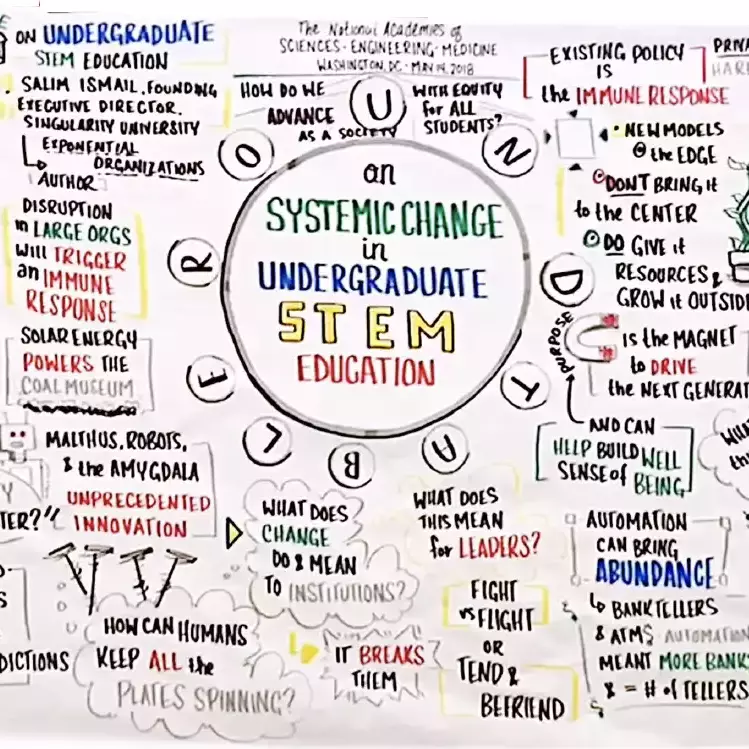 ON UNDERGRADUATE
STEM EDUCATION
SALIM ISMAIL, FOUNDING
EXECUTIVE DIRECTOR,
SINGULARITY UNIVERSITY
EXPONENTIAL
ORGANIZATIONS
AUTHOR
DISRUPTION
in LARGE ORGS
will TRIGGER
an IMMUNE
RESPONSE
SOLAR ENERGY
POWERS THE
COAL MUSEUM
MALTHUS, ROBOTS,
& the AMYGDALA
UNPRECEDENTED
INNOVATION
HOW CAN HUMANS
KEEP ALL the
PLATES SPINNING?
The National Academies of
SCIENCES · ENGINEERING · MEDICINE
WASHINGTON, DC · MAY 14, 2018
HOW DO WE
ADVANCE
AS A SOCIETY
WITH EQUITY
for ALL
STUDENTS?
ROUNDTABLE
an
SYSTEMIC CHANGE
in
UNDERGRADUATE
STEM
EDUCATION
WHAT DOES
CHANGE
DO & MEAN
TO INSTITUTIONS?
IT BREAKS
THEM
WHAT DOES
THIS MEAN
for LEADERS?
FIGHT
vs FLIGHT
OR
TEND &
BEFRIEND
EXISTING POLICY
IS
the IMMUNE RESPONSE
NEW MODELS
@ the EDGE
DON'T BRING it
to the CENTER
DO GIVE it
RESOURCES &
GROW it OUTSID
PURPOSE
is the MAGNET
to DRIVE
the NEXT GENERAT
AND CAN
HELP BUILD WELL
SENSE of BEING
AUTOMATION
CAN BRING
ABUNDANCE
BANK TELLERS
& ATMS AUTOMATION
MEANT MORE BANK
& = # of TELLERS